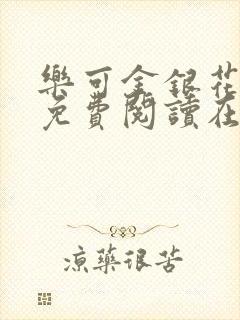 樂可金銀花
免費閱讀在
涼藥很苦